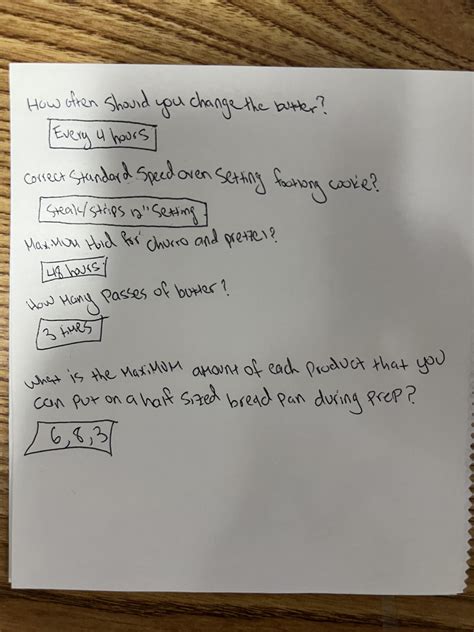 How often should you change the butter?
Every 4 hours
Correct Standard Speed oven Setting footlong cookie?
Steak/strips 12" Setting
Maximum Hold for churro and pretzel?
48 hours
How Many passes of butter?
3 times
What is the Maximum amount of each product that you
can put on a half sized bread pan during prep?
6,8,3